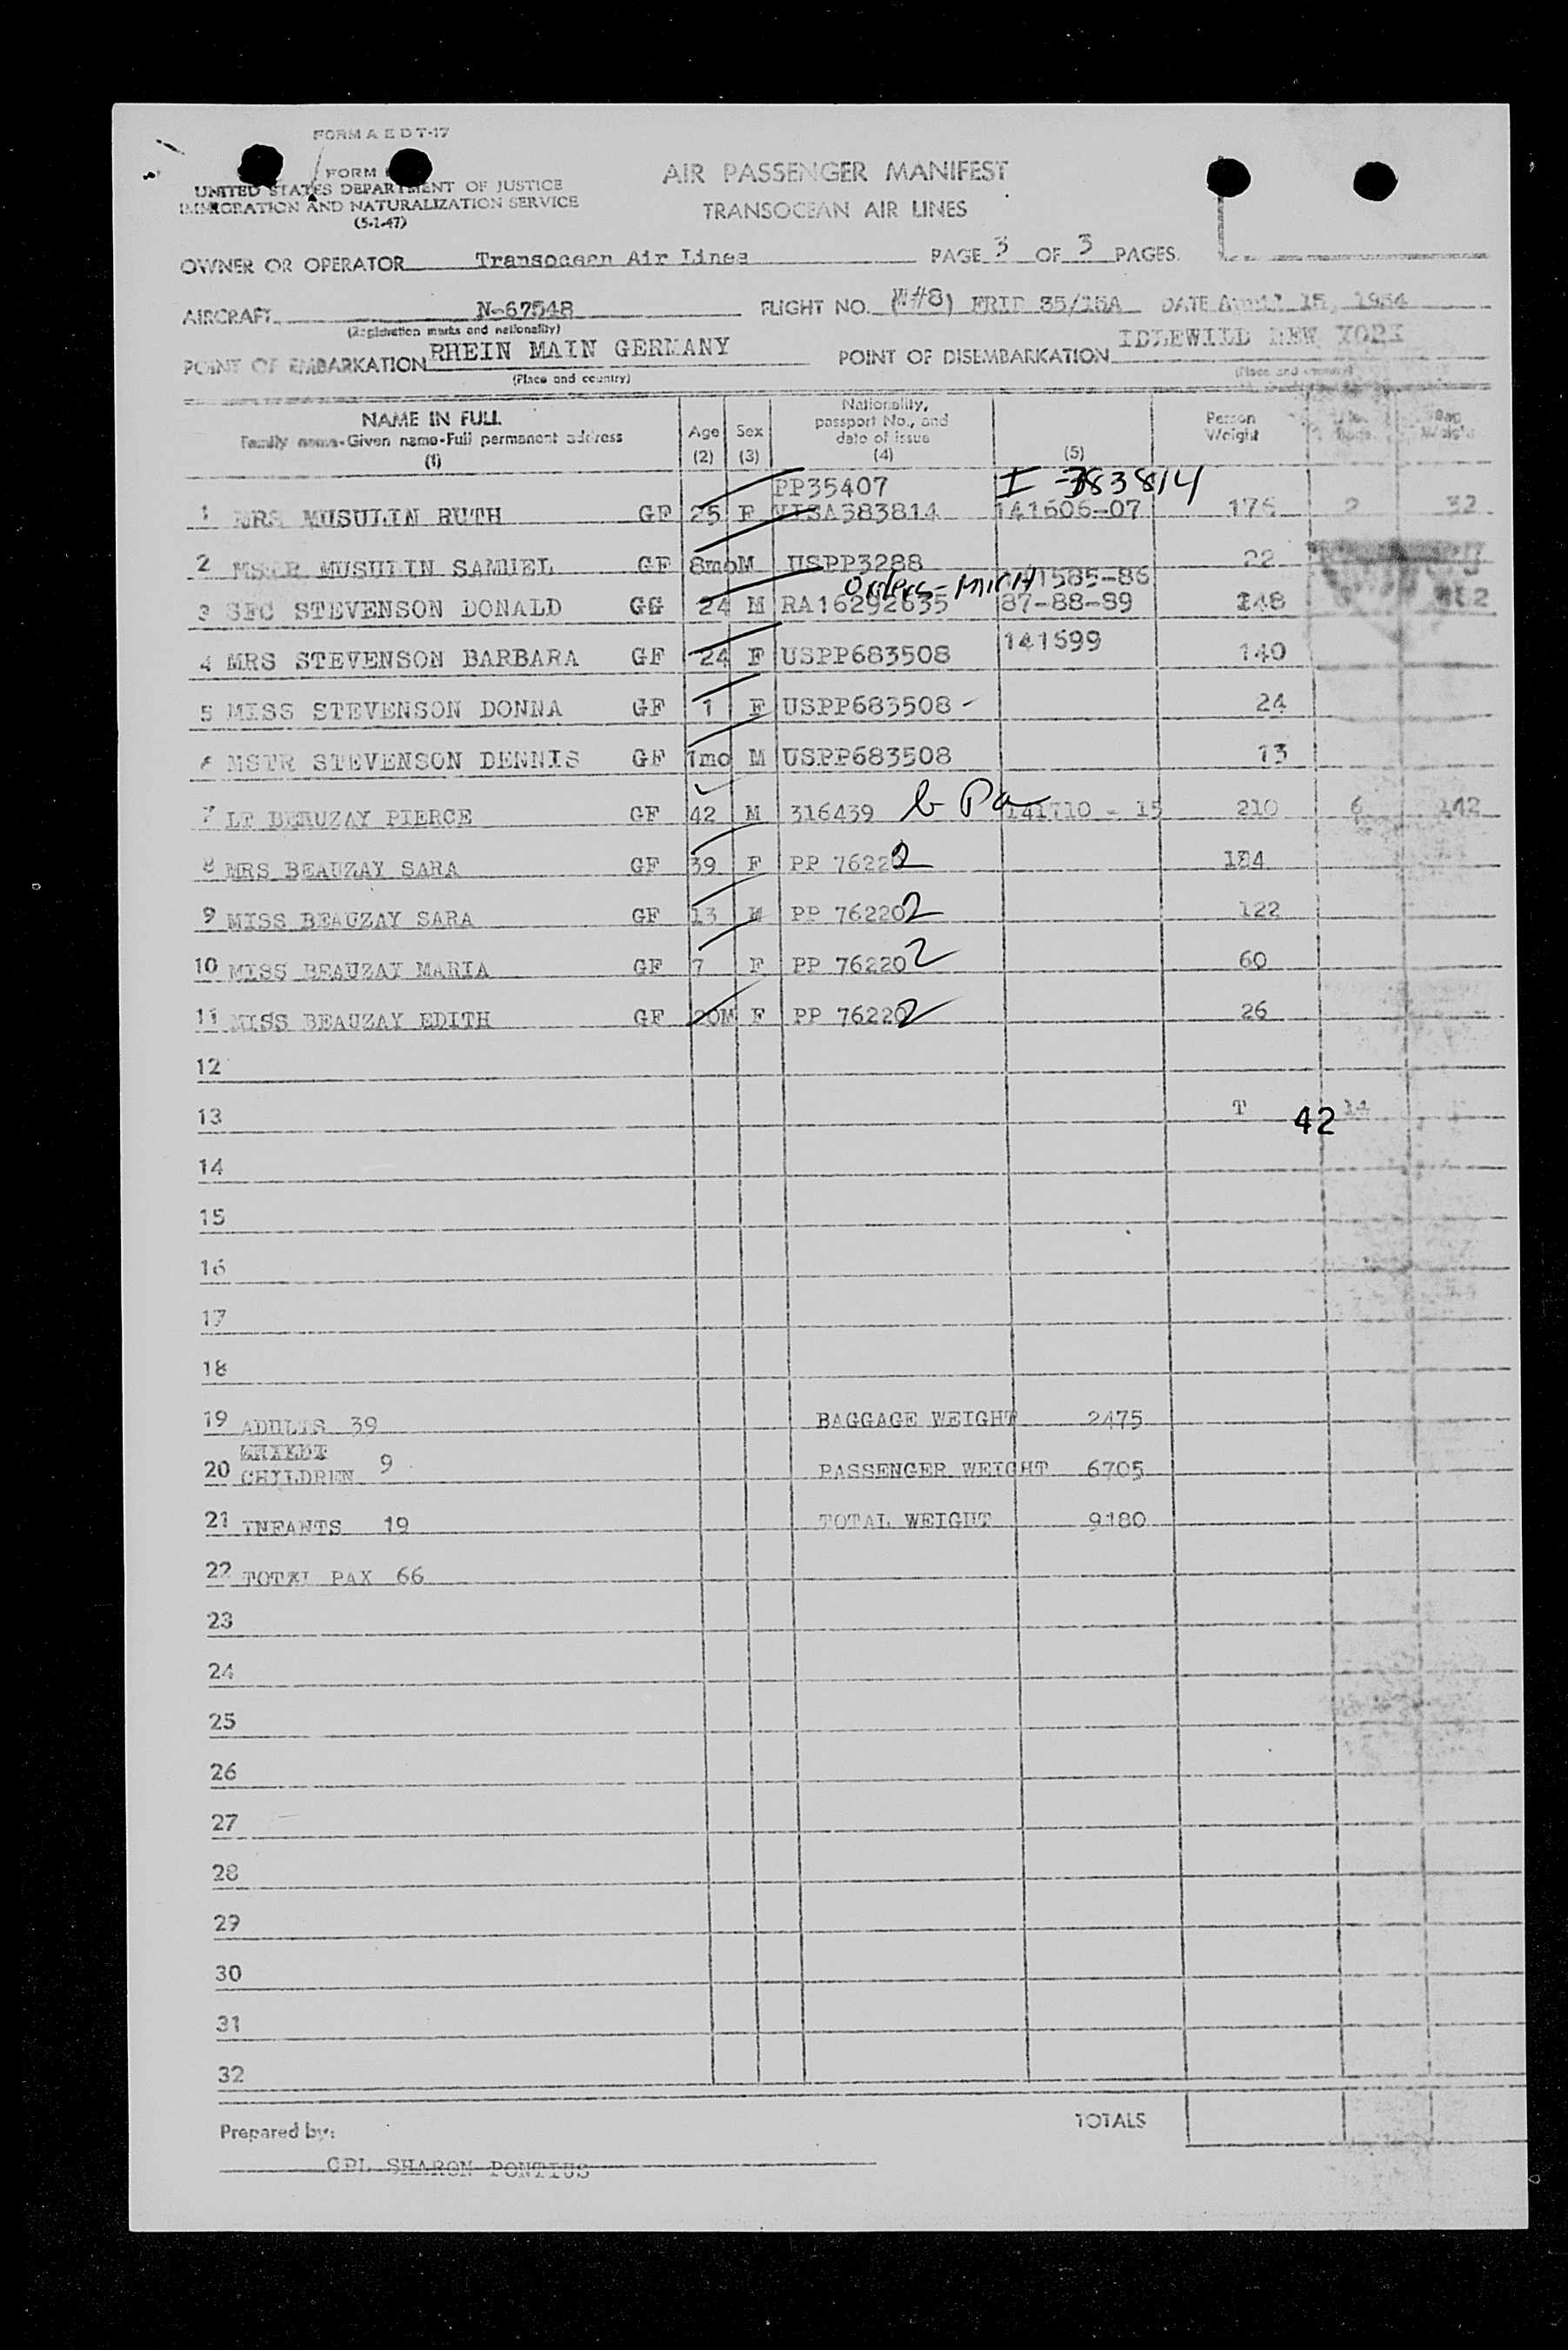 FORM A E D T-17
FORM
UNITED STATES DEPARTMENT OF JUSTICE
IMMIGRATION AND NATURALIZATION SERVICE
(5-1-47)
AIR PASSENGER MANIFEST
TRANSOCEAN AIR LINES
OWNER OR OPERATOR Transocean Air Lines PAGE 3 OF 3 PAGES.
AIRCRAFT N-67548 FLIGHT NO. (W#8) FRIP 35/15A DATE April 15, 1954
(Registration marks and nationality)
POINT OF EMBARKATION RHEIN MAIN GERMANY POINT OF DISEMBARKATION IDLEWILD NEW YORK
(Place and country) (Place and country)
NAME IN FULL
Family name-Given name-Full permanent address
(1)
Age
(2)
Sex
(3)
Nationality,
passport No., and
date of issue
(4)
(5)
Person
Weight
Bag
Weight
PP35407 I-383814
1 MRS MUSULIN RUTH GF 25 F VISA383814 141606-07 176 2 32
2 MSTR MUSULIN SAMUEL GF 8mo M USPP3288 22
Orders - Mich 141585-86
3 SFC STEVENSON DONALD GG 24 M RA16292635 87-88-89 148
141599
4 MRS STEVENSON BARBARA GF 24 F USPP683508 140
5 MISS STEVENSON DONNA GF 1 F USPP683508 - 24
6 MSTR STEVENSON DENNIS GF 1mo M USPP683508 13
7 LT BEAUZAY PIERCE GF 42 M 316439 b Pa 141710 - 15 210 6 142
8 MRS BEAUZAY SARA GF 39 F PP 76220 2 184
9 MISS BEAUZAY SARA GF 13 M PP 76220 2 122
10 MISS BEAUZAY MARIA GF 7 F PP 76220 2 60
11 MISS BEAUZAY EDITH GF 20M F PP 76220 2 26
12
13 T 42 14
14
15
16
17
18
19 ADULTS 39 BAGGAGE WEIGHT 2475
20 CHILDREN 9 PASSENGER WEIGHT 6705
21 INFANTS 19 TOTAL WEIGHT 9180
22 TOTAL PAX 66
23
24
25
26
27
28
29
30
31
32
Prepared by: TOTALS
CPL SHARON PONTIUS